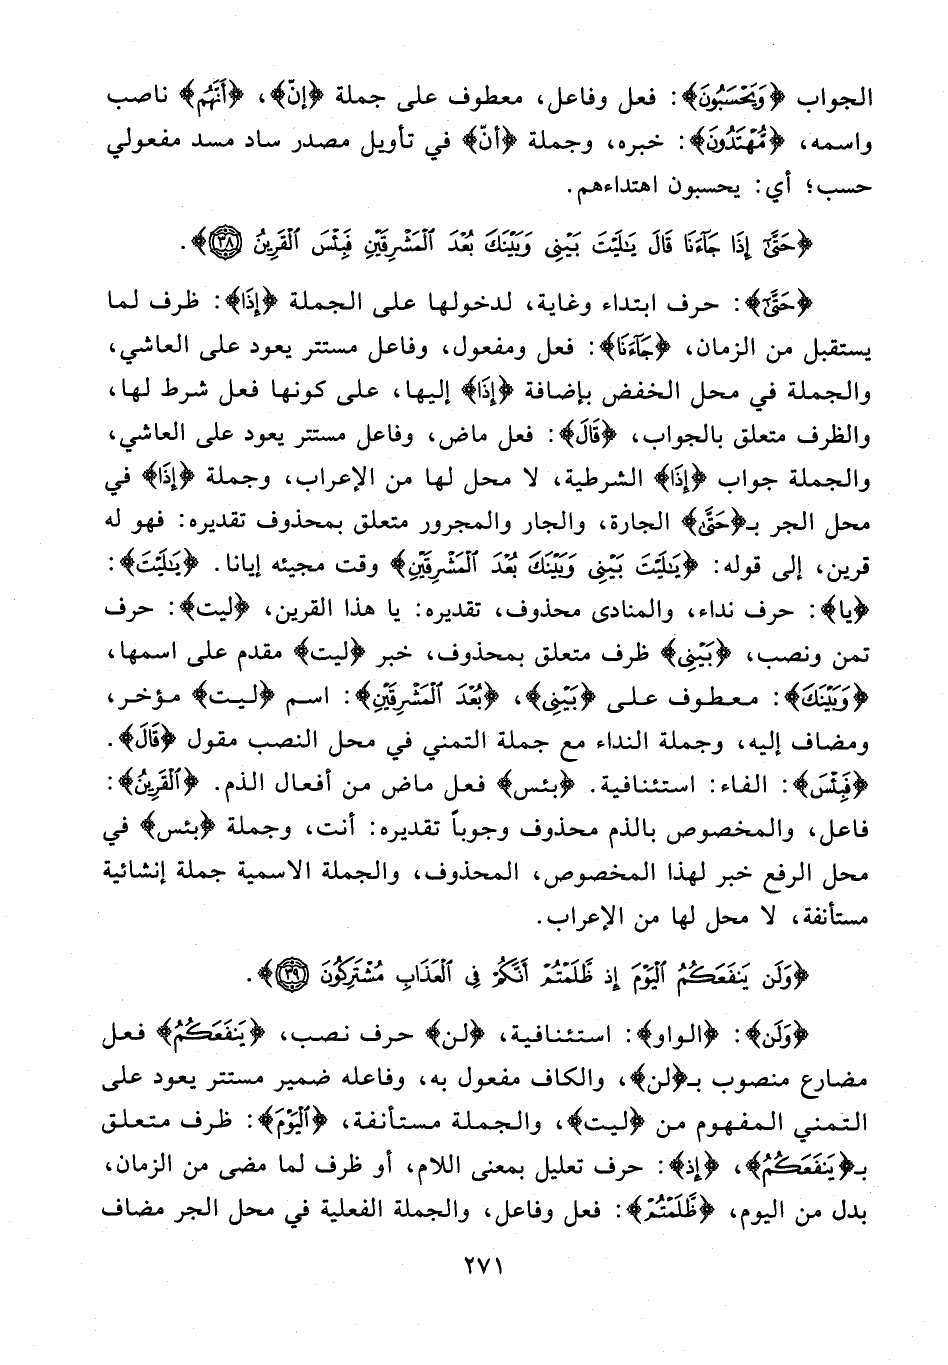 الجواب ﴿وَيَحْسَبُونَ﴾: فعل وفاعل، معطوف على جملة ﴿إنّ﴾، ﴿أَنَّهُم﴾ ناصب
واسمه، ﴿مُّهْتَدُونَ﴾: خبره، وجملة ﴿أنّ﴾ في تأويل مصدر ساد مسد مفعولي
حسب؛ أي: يحسبون اهتداءهم.
﴿حَتَّىٰٓ إِذَا جَآءَنَا قَالَ يَٰلَيْتَ بَيْنِى وَبَيْنَكَ بُعْدَ ٱلْمَشْرِقَيْنِ فَبِئْسَ ٱلْقَرِينُ ٣٨﴾.
﴿حَتَّىٰٓ﴾: حرف ابتداء وغاية، لدخولها على الجملة ﴿إِذَا﴾: ظرف لما
يستقبل من الزمان، ﴿جَآءَنَا﴾: فعل ومفعول، وفاعل مستتر يعود على العاشي،
والجملة في محل الخفض بإضافة ﴿إِذَا﴾ إليها، على كونها فعل شرط لها،
والظرف متعلق بالجواب، ﴿قَالَ﴾: فعل ماض، وفاعل مستتر يعود على العاشي،
والجملة جواب ﴿إِذَا﴾ الشرطية، لا محل لها من الإعراب، وجملة ﴿إِذَا﴾ في
محل الجر بـ﴿حَتَّىٰ﴾ الجارة، والجار والمجرور متعلق بمحذوف تقديره: فهو له
قرين، إلى قوله: ﴿يَٰلَيْتَ بَيْنِى وَبَيْنَكَ بُعْدَ ٱلْمَشْرِقَيْنِ﴾ وقت مجيئه إيانا. ﴿يَٰلَيْتَ﴾:
﴿يا﴾: حرف نداء، والمنادى محذوف، تقديره: يا هذا القرين، ﴿ليت﴾: حرف
تمن ونصب، ﴿بَيْنِى﴾ ظرف متعلق بمحذوف، خبر ﴿ليت﴾ مقدم على اسمها،
﴿وَبَيْنَكَ﴾: معطوف على ﴿بَيْنِى﴾، ﴿بُعْدَ ٱلْمَشْرِقَيْنِ﴾: اسم ﴿ليت﴾ مؤخر،
ومضاف إليه، وجملة النداء مع جملة التمني في محل النصب مقول ﴿قَالَ﴾.
﴿فَبِئْسَ﴾: الفاء: استئنافية. ﴿بئس﴾ فعل ماض من أفعال الذم. ﴿ٱلْقَرِينُ﴾:
فاعل، والمخصوص بالذم محذوف وجوباً تقديره: أنت، وجملة ﴿بئس﴾ في
محل الرفع خبر لهذا المخصوص، المحذوف، والجملة الاسمية جملة إنشائية
مستأنفة، لا محل لها من الإعراب.
﴿وَلَن يَنفَعَكُمُ ٱلْيَوْمَ إِذ ظَّلَمْتُمْ أَنَّكُمْ فِى ٱلْعَذَابِ مُشْتَرِكُونَ ٣٩﴾.
﴿وَلَن﴾: ﴿الواو﴾: استئنافية، ﴿لن﴾ حرف نصب، ﴿يَنفَعَكُمُ﴾ فعل
مضارع منصوب بـ﴿لن﴾، والكاف مفعول به، وفاعله ضمير مستتر يعود على
التمني المفهوم من ﴿ليت﴾، والجملة مستأنفة، ﴿ٱلْيَوْمَ﴾: ظرف متعلق
بـ﴿يَنفَعَكُمُ﴾، ﴿إذ﴾: حرف تعليل بمعنى اللام، أو ظرف لما مضى من الزمان،
بدل من اليوم، ﴿ظَّلَمْتُمْ﴾: فعل وفاعل، والجملة الفعلية في محل الجر مضاف
٢٧١